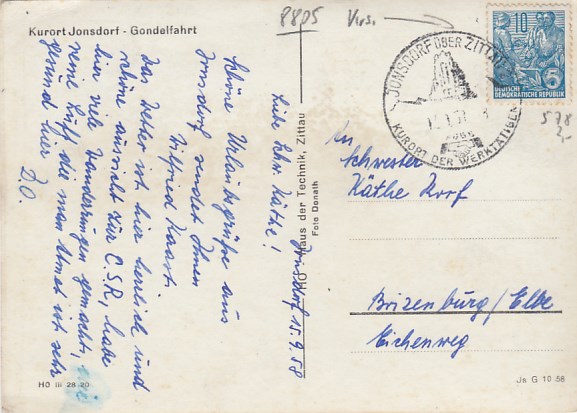 8805 Virs.
Kurort Jonsdorf - Gondelfahrt
Jonsdorf 15.9.58
Liebe Schw. Käthe!
Schöne Urlaubsgrüße aus
Jonsdorf sendet Ihnen
Wilfried
Das Wetter ist hier herlich und
schöne aussicht zur C.S.R, habe
hier viele Wanderungen gemacht,
reine Luft die man atmet ist sehr
gesund hier
D.O.
HO Haus der Technik, Zittau
Foto Donath
JONSDORF ÜBER ZITTAU
KURORT DER WERKTÄTIGEN
10
5
DEUTSCHE
DEMOKRATISCHE REPUBLIK
578
An
Schwester
Käthe Korf
Boizenburg/Elbe
Eichenweg
HO III 28-20
Js G 10 58